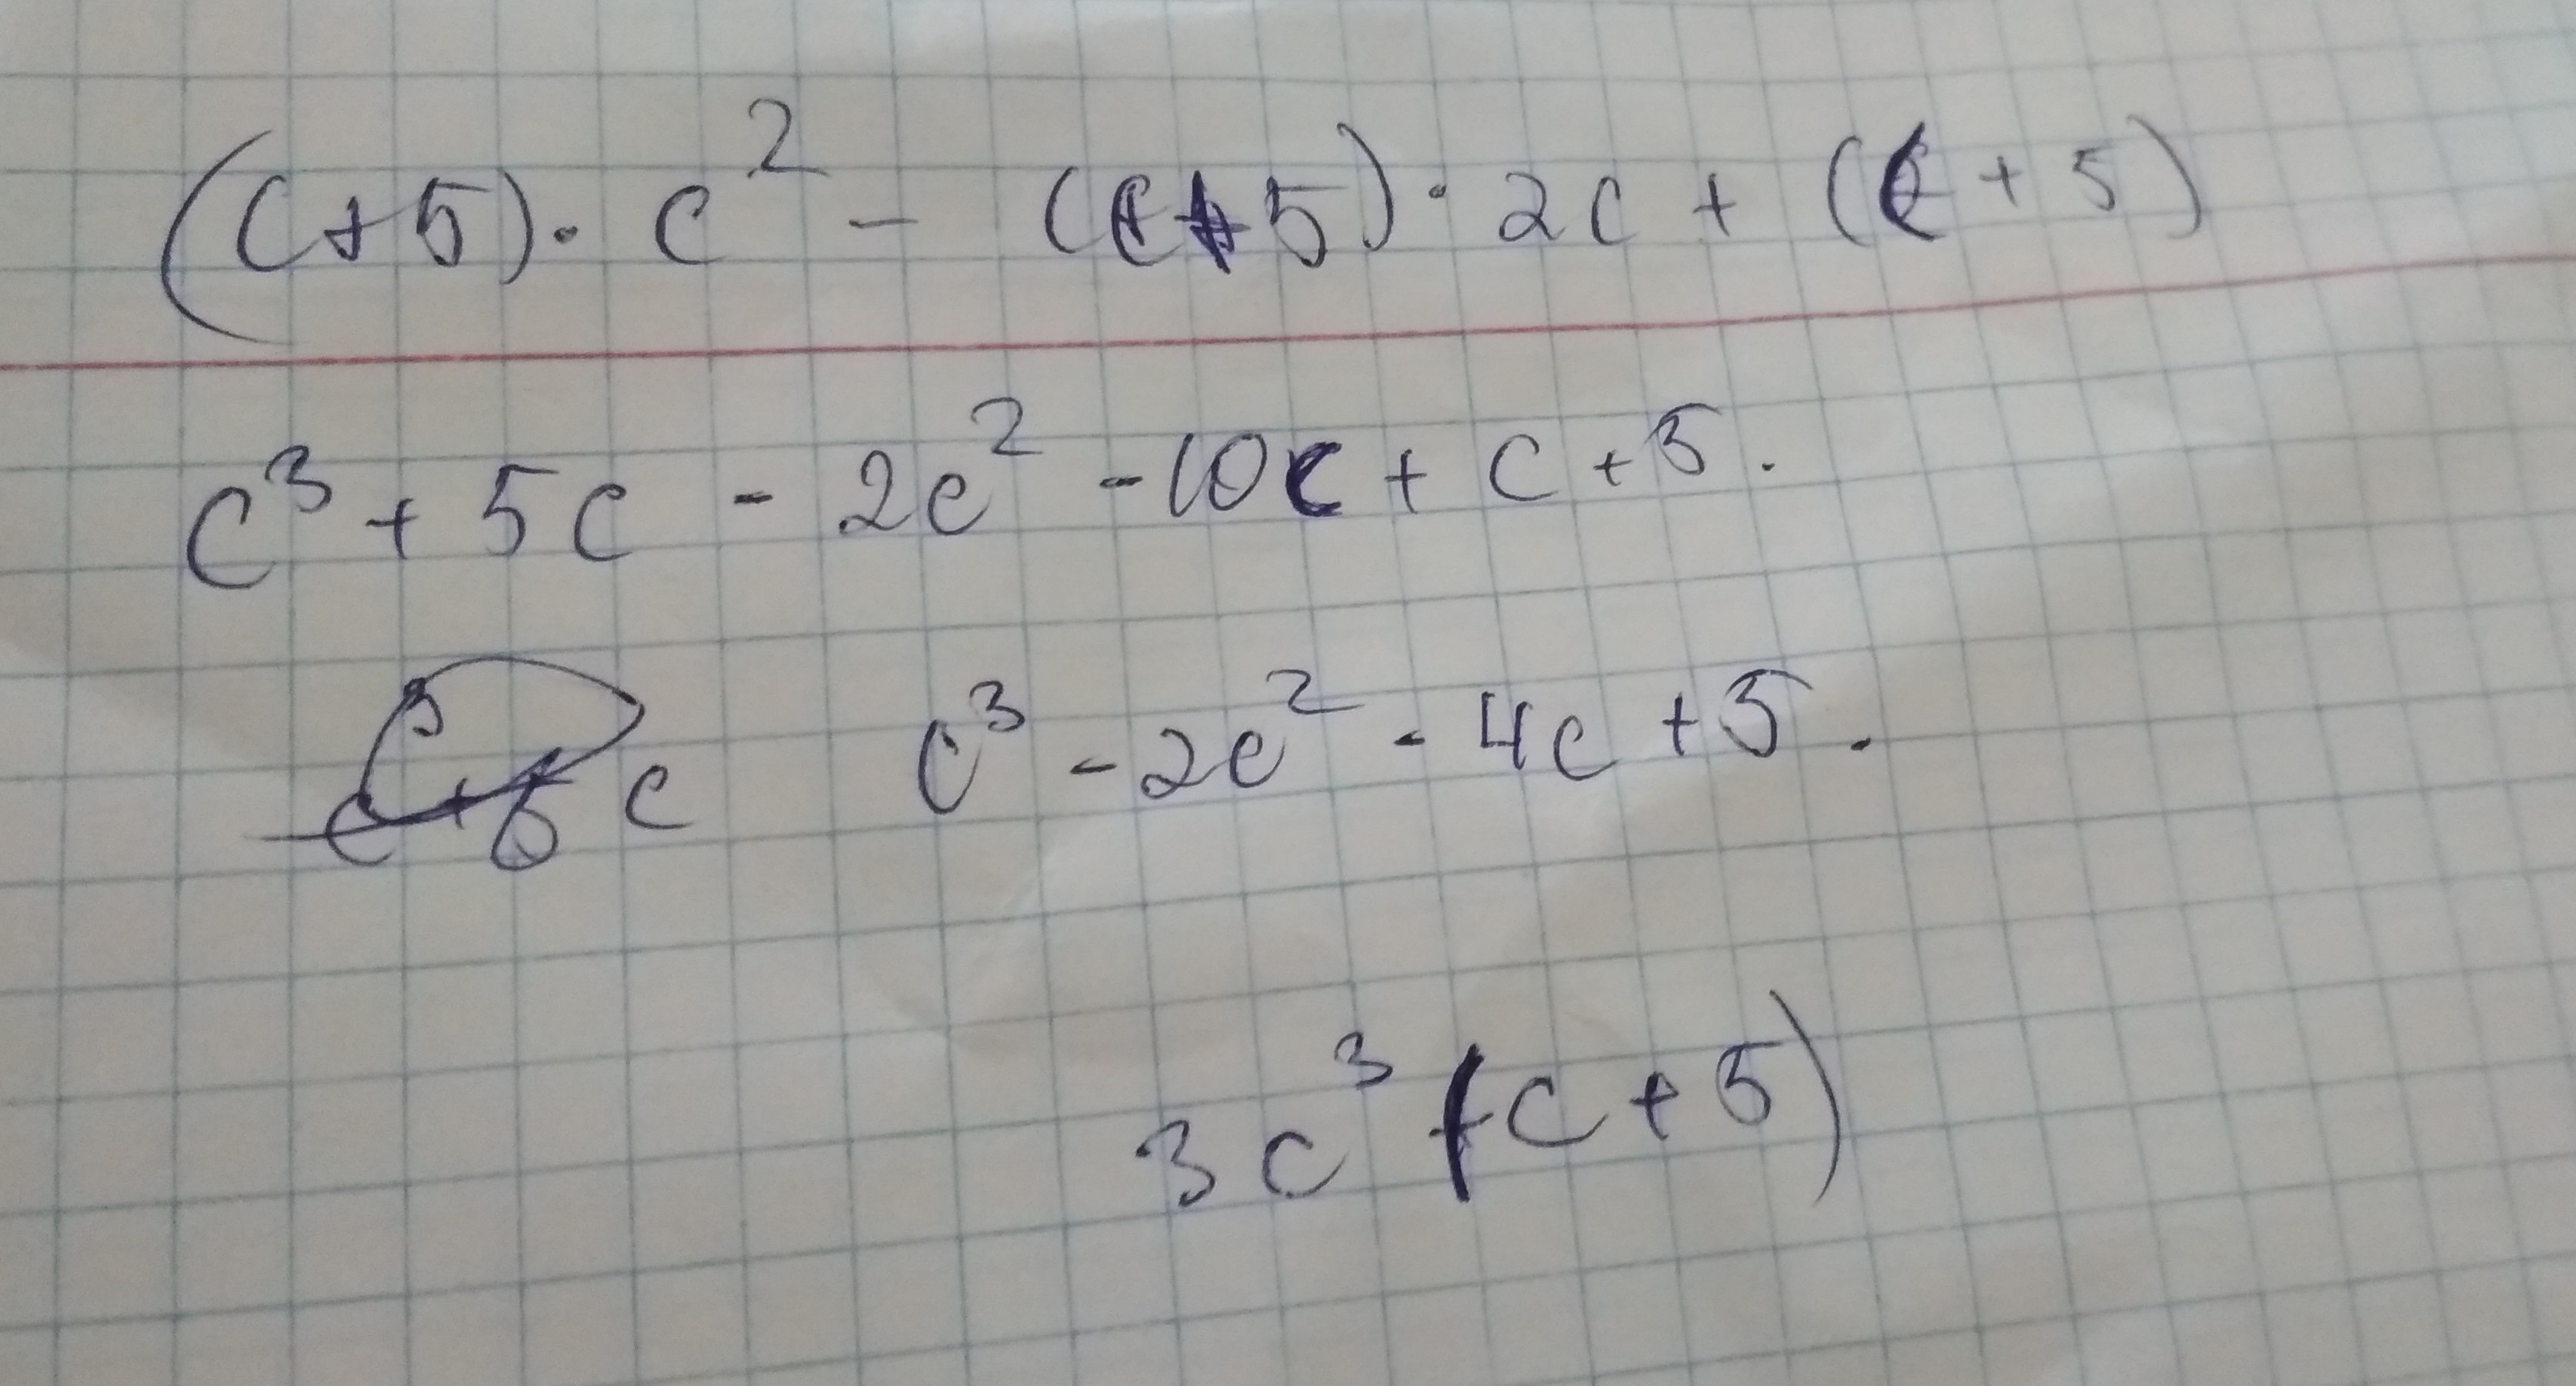 (c+5)·c² - (c+5)·2c + (c+5)
c³ + 5c - 2c² - 10c + c + 5.
c c³ - 2c² - 4c + 5.
3c³(c+5)